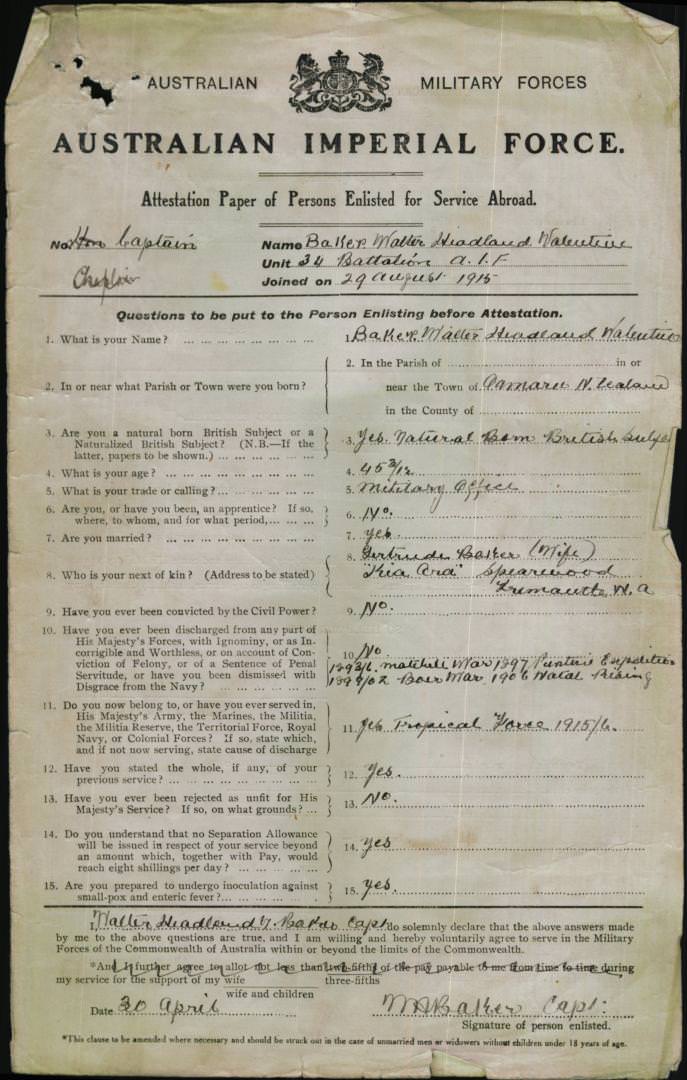 AUSTRALIAN MILITARY FORCES
AUSTRALIAN IMPERIAL FORCE.
Attestation Paper of Persons Enlisted for Service Abroad.
No. Hon Captain
Chaplin
Name Baker Walter Headland Valentine
Unit 34 Battalion A.I.F
Joined on 29 August 1915
Questions to be put to the Person Enlisting before Attestation.
1. What is your Name? ... 1. Baker Walter Headland Valentine
2. In or near what Parish or Town were you born? ...
2. In the Parish of ... in or
near the Town of Oamaru N. Zealand
in the County of ...
3. Are you a natural born British Subject or a
Naturalized British Subject? (N.B.—If the
latter, papers to be shown.) ...
3. Yes. Natural Born British Subject
4. What is your age? ... 4. 45 3/12
5. What is your trade or calling? ... 5. Military Office
6. Are you, or have you been, an apprentice? If so,
where, to whom, and for what period, ...
6. No.
7. Are you married? ... 7. yes.
8. Who is your next of kin? (Address to be stated)
8. Gertrude Baker (Wife)
"Kia Ora" Spearwood
Fremantle W. A
9. Have you ever been convicted by the Civil Power? 9. No.
10. Have you ever been discharged from any part of
His Majesty's Forces, with Ignominy, or as In-
corrigible and Worthless, or on account of Con-
viction of Felony, or of a Sentence of Penal
Servitude, or have you been dismissed with
Disgrace from the Navy? ...
10. No
1893/6. Matabili War 1897 Expedition
1899/02 Boer War 1906 Natal Rising
11. Do you now belong to, or have you ever served in,
His Majesty's Army, the Marines, the Militia,
the Militia Reserve, the Territorial Force, Royal
Navy, or Colonial Forces? If so, state which,
and if not now serving, state cause of discharge
11. Yes Tropical Force 1915/6.
12. Have you stated the whole, if any, of your
previous service? ...
12. Yes.
13. Have you ever been rejected as unfit for His
Majesty's Service? If so, on what grounds? ...
13. No.
14. Do you understand that no Separation Allowance
will be issued in respect of your service beyond
an amount which, together with Pay, would
reach eight shillings per day? ...
14. yes
15. Are you prepared to undergo inoculation against
small-pox and enteric fever? ...
15. yes.
I, Walter Headland V. Baker Capt do solemnly declare that the above answers made
by me to the above questions are true, and I am willing and hereby voluntarily agree to serve in the Military
Forces of the Commonwealth of Australia within or beyond the limits of the Commonwealth.
*And I further agree to allot not less than two-fifths of the pay payable to me from time to time during
three-fifths
my service for the support of my wife
wife and children
Date 30 April
W H Baker Capt.
Signature of person enlisted.
*This clause to be amended where necessary and should be struck out in the case of unmarried men or widowers without children under 18 years of age.